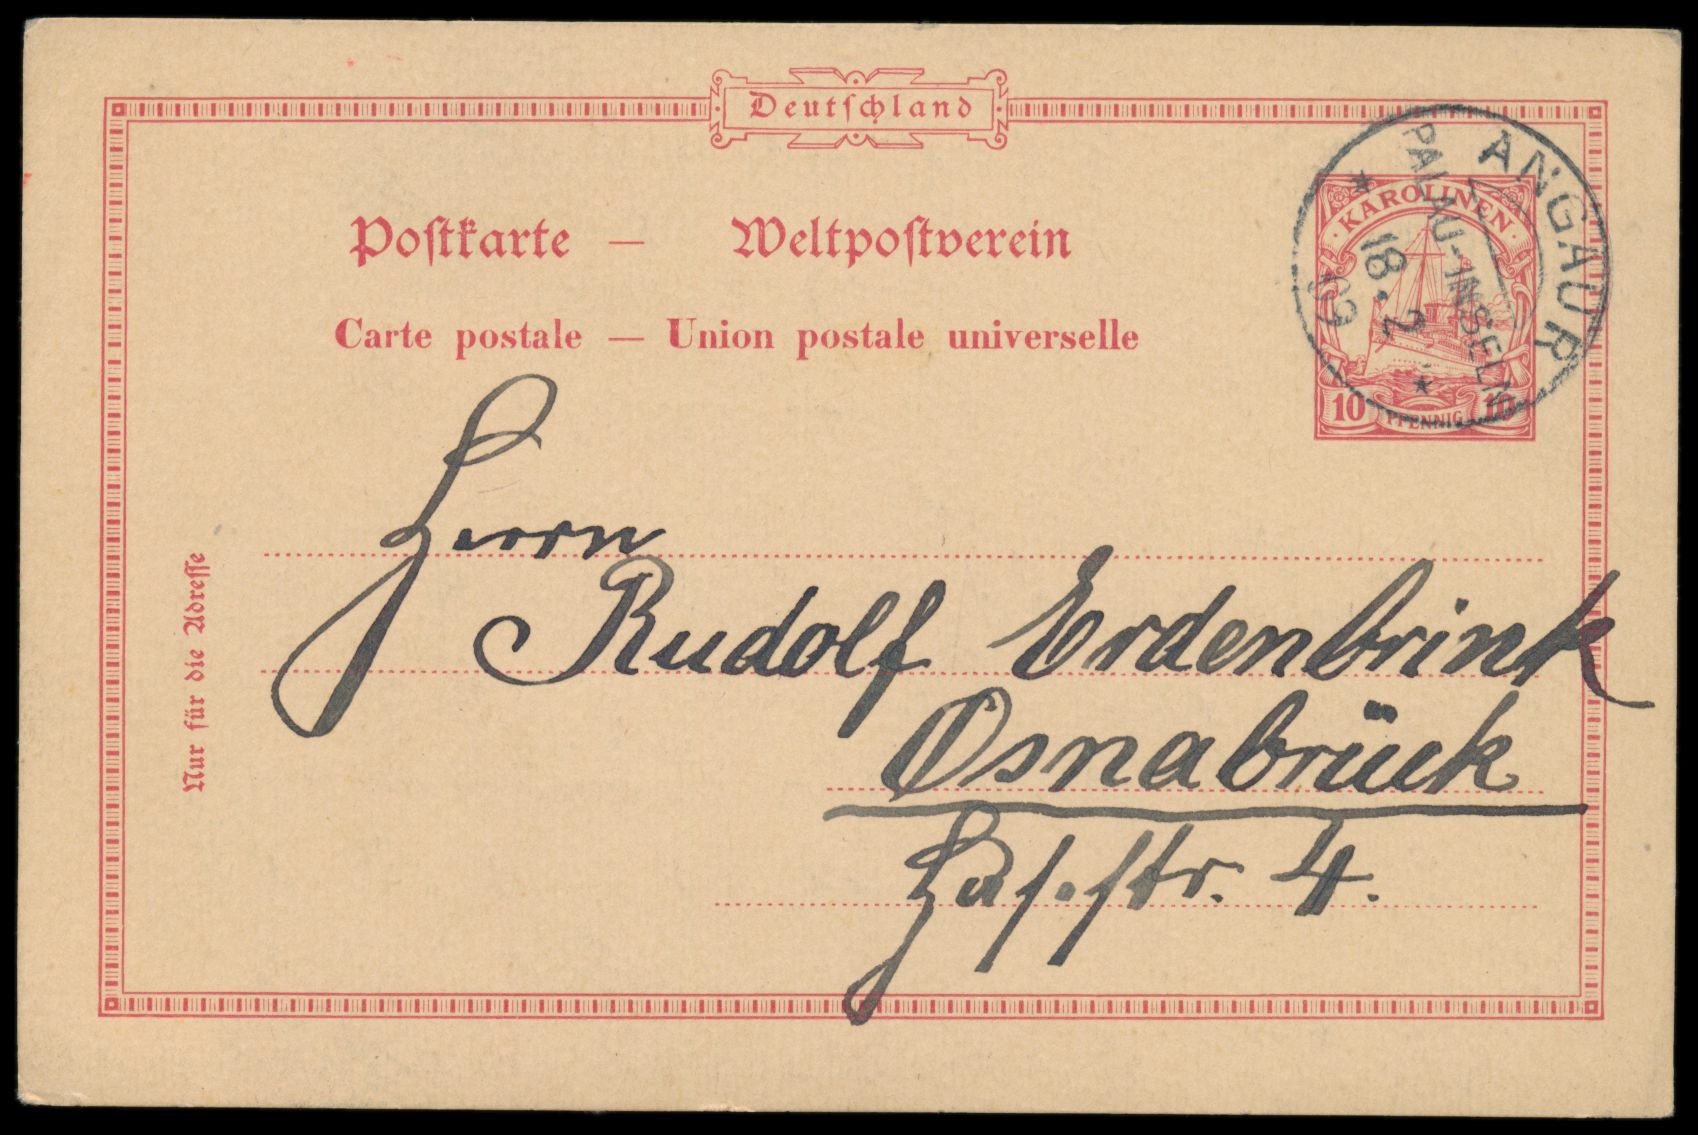 Deutschland
Postkarte — Weltpostverein
Carte postale — Union postale universelle
KAROLINEN
10 PFENNIG 10
ANGAUR
PALAU-INSELN
* 18.2. *
09
Nur für die Adresse
Herrn
Rudolf Erdenbrink
Osnabrück
Has.str. 4.